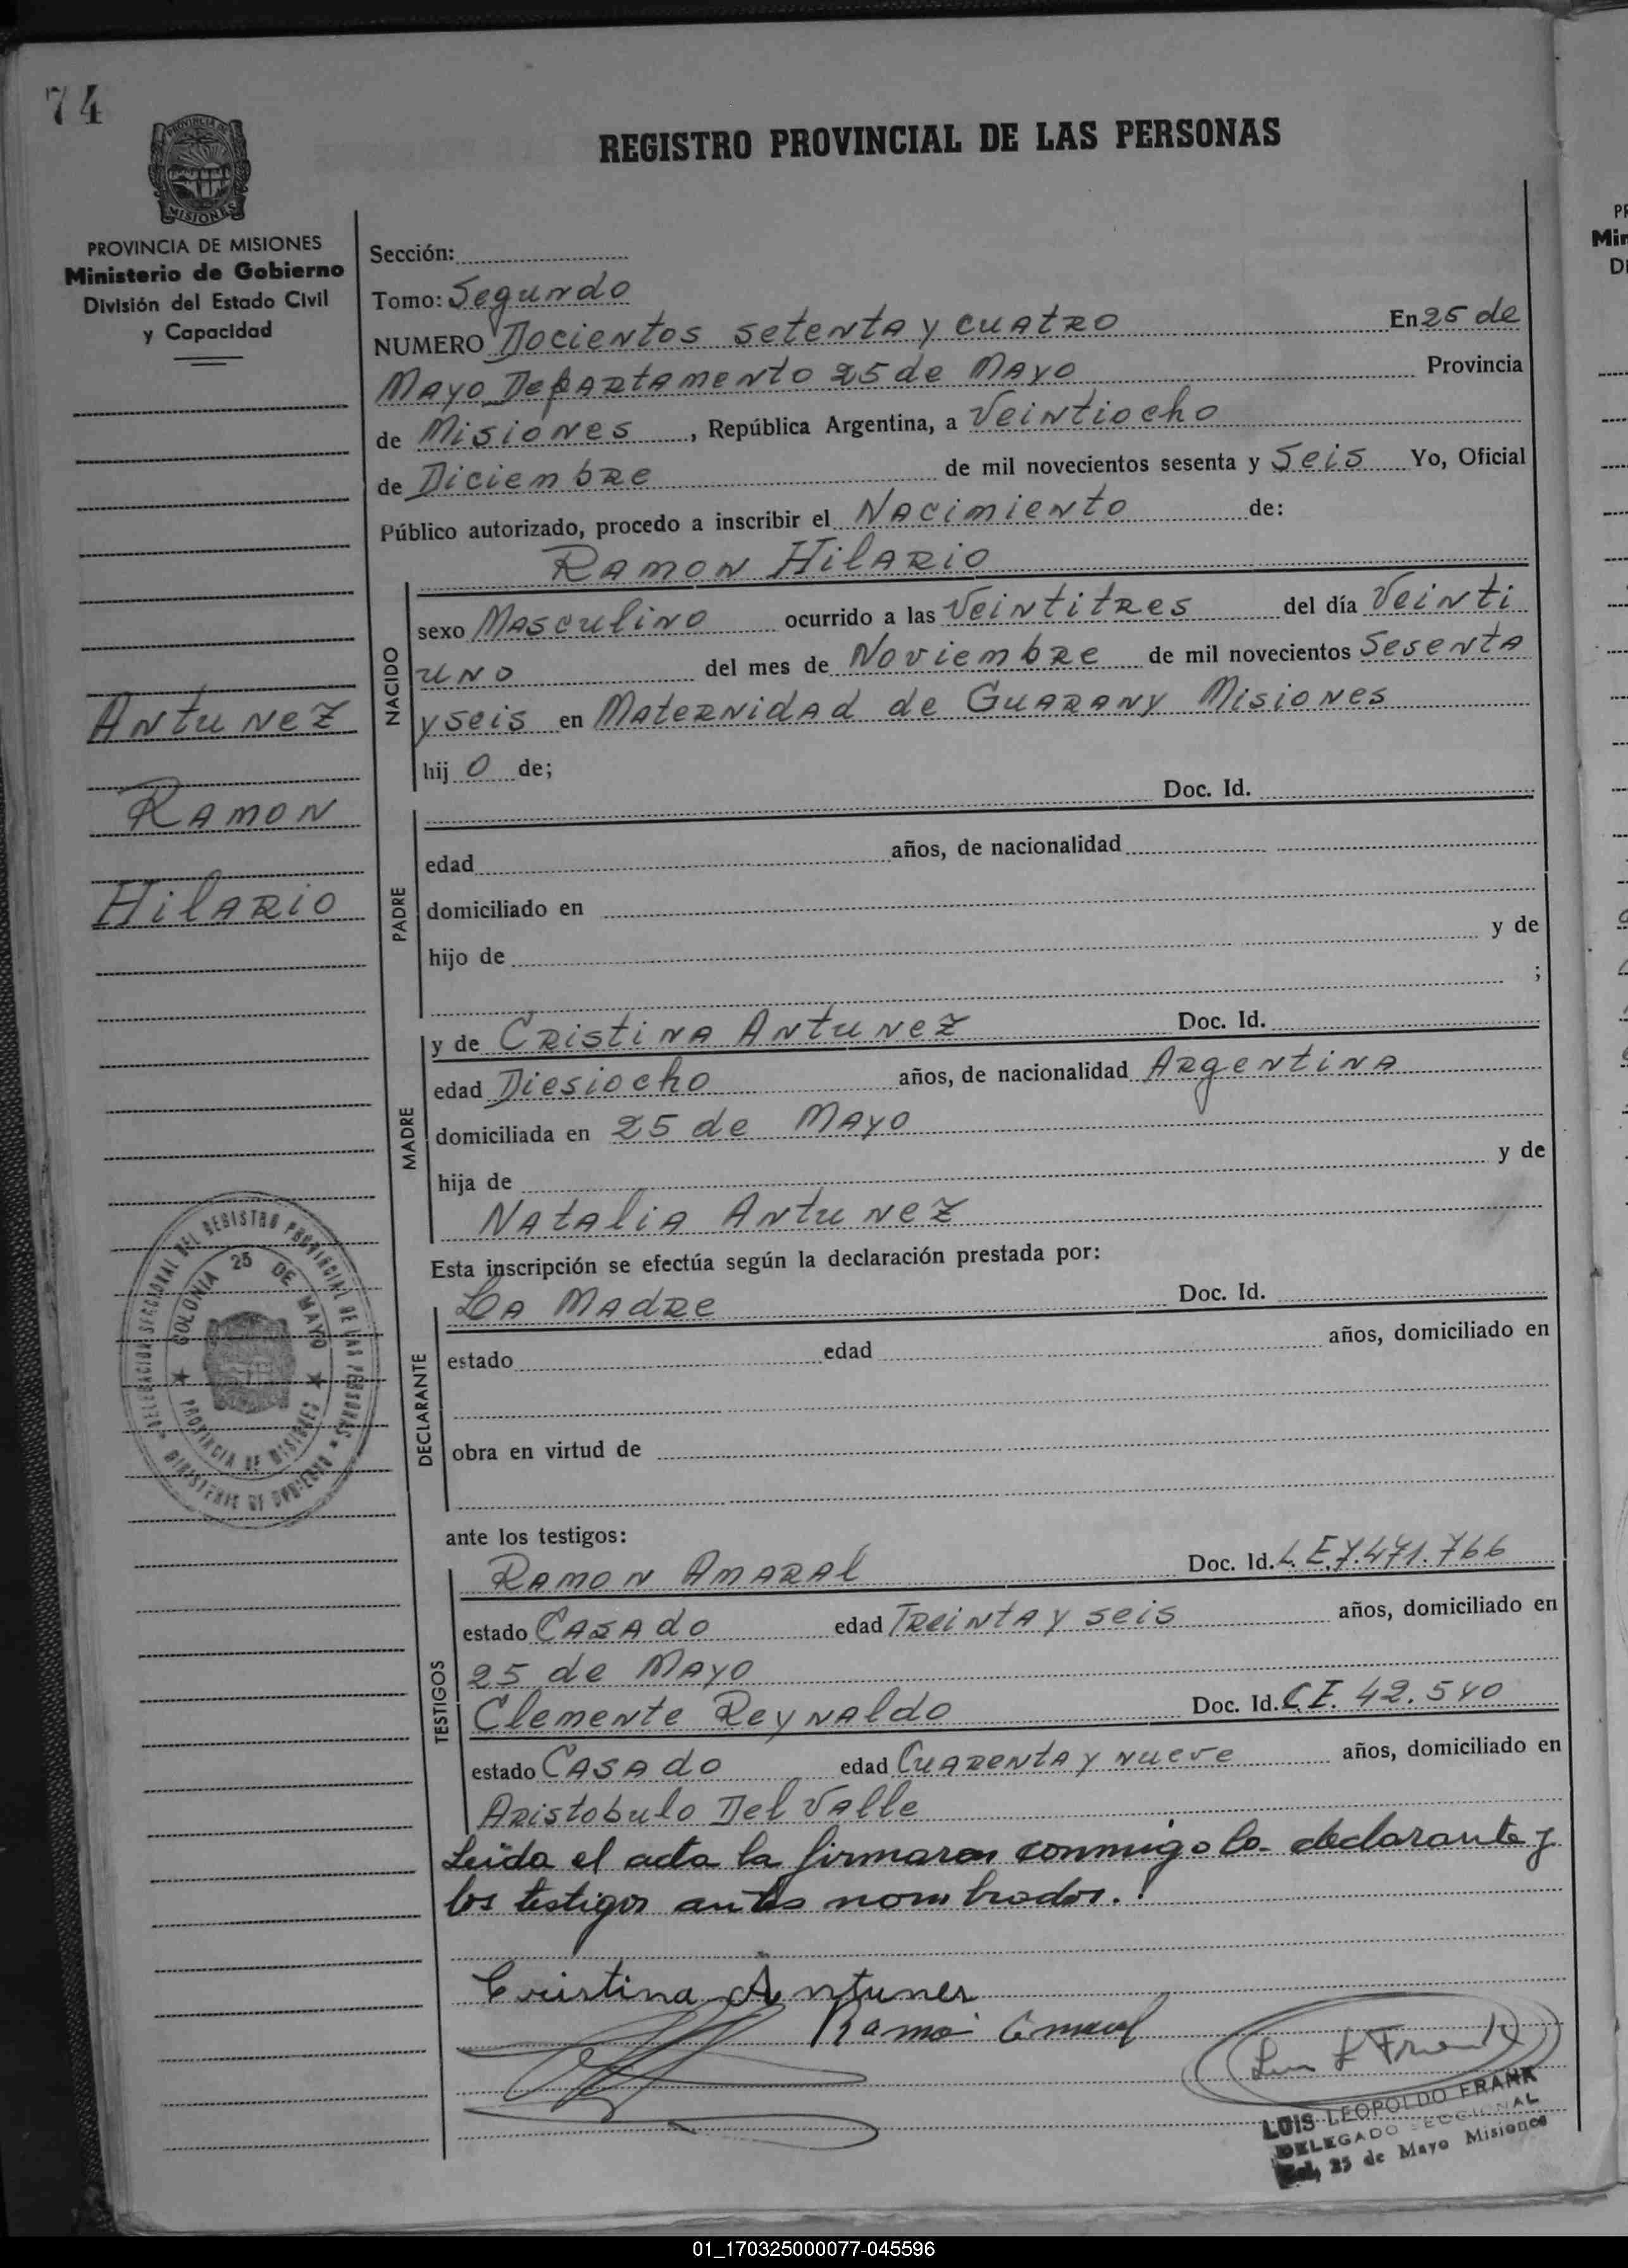 74
REGISTRO PROVINCIAL DE LAS PERSONAS
PROVINCIA DE
MISIONES
PROVINCIA DE MISIONES
Ministerio de Gobierno
División del Estado Civil
y Capacidad
Antunez
Ramon
Hilario
DELEGACION SECCIONAL DEL REGISTRO PROVINCIAL DE LAS PERSONAS
MINISTERIO DE GOBIERNO
COLONIA 25 DE MAYO
PROVINCIA DE MISIONES
Sección:
Tomo: Segundo
NUMERO Docientos setenta y cuatro En 25 de
Mayo Departamento 25 de Mayo Provincia
de Misiones, República Argentina, a Veintiocho
de Diciembre de mil novecientos sesenta y Seis Yo, Oficial
Público autorizado, procedo a inscribir el Nacimiento de:
Ramon Hilario
NACIDO
sexo Masculino ocurrido a las Veintitres del día Veinti
uno del mes de Noviembre de mil novecientos Sesenta
y seis en Maternidad de Guarany Misiones
hij o de;
Doc. Id.
PADRE
edad años, de nacionalidad
domiciliado en
hijo de y de
;
MADRE
y de Cristina Antunez Doc. Id.
edad Diesiocho años, de nacionalidad Argentina
domiciliada en 25 de Mayo
hija de y de
Natalia Antunez
Esta inscripción se efectúa según la declaración prestada por:
La Madre Doc. Id.
DECLARANTE
estado edad años, domiciliado en
obra en virtud de
ante los testigos:
Ramon Amaral Doc. Id. L.E.7.471.766
TESTIGOS
estado Casado edad Treinta y seis años, domiciliado en
25 de Mayo
Clemente Reynaldo Doc. Id. C.I. 42.540
estado Casado edad Cuarenta y nueve años, domiciliado en
Aristobulo Del Valle
Leida el acta la firmaron conmigo la declarante y
los testigos antes nombrados.
Cristina Antunes
Ramon Amaral
Luis L Frank
LUIS LEOPOLDO FRANK
DELEGADO SECCIONAL
Col, 25 de Mayo Misiones
PR
Min
Di
01_170325000077-045596